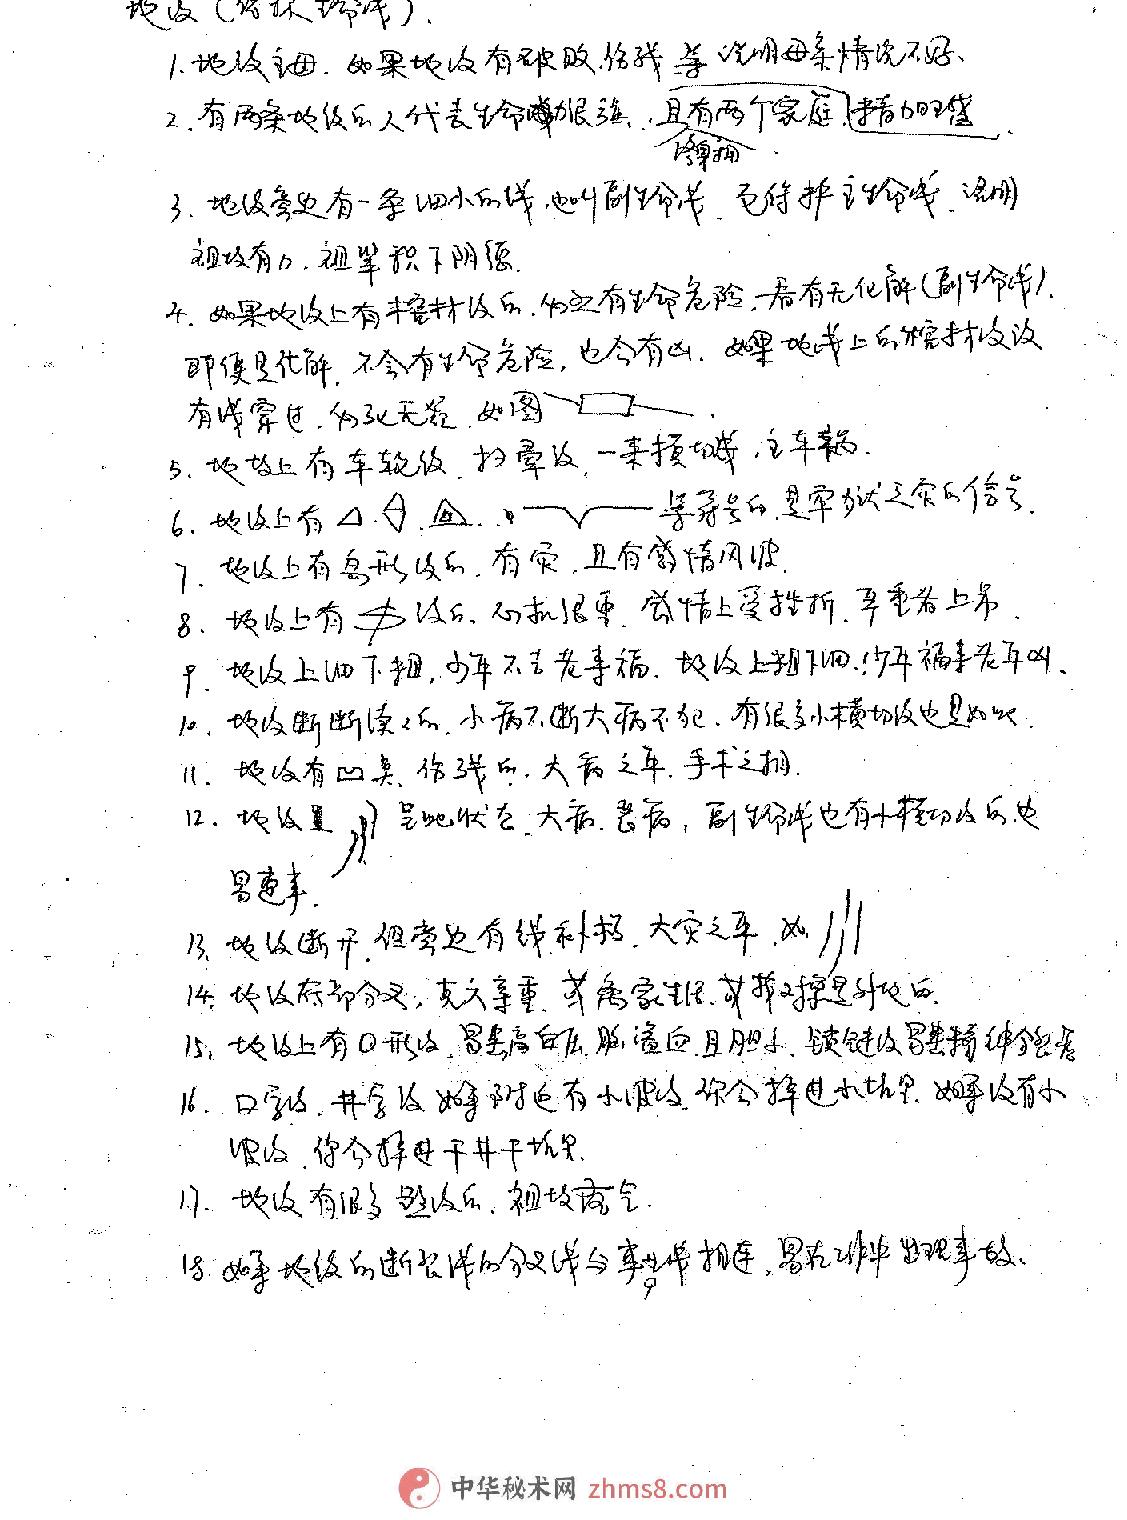 地纹（俗称生命线）.
1. 地纹主母. 如果地纹有破败.伤残等说明母亲情况不好.
2. 有两条地纹的人代表生命力很强. 且有两个家庭.精力旺盛.
3. 地纹旁边有一条细小的线.也叫副生命线. 它保护主生命线. 说明
祖坟有力. 祖辈积下阴德.
4. 如果地纹上有棺材纹的. 必定有生命危险. 看有无化解（副生命线）.
即便是化解. 不会有生命危险. 也会有凶. 如果地线上的棺材纹没
有线穿过. 必死无疑. 如图
5. 地纹上有车轮纹. 一条横切线. 主车祸.
6. 地纹上有 等符号的. 是牢狱之灾的信号.
7. 地纹上有岛形纹的. 有灾. 且有感情风波.
8. 地纹上有 纹的. 心机很重. 感情上受挫折. 严重者上吊.
9. 地纹上细下粗. 少年不吉老来福. 地纹上粗下细. 少年福来老年凶.
10. 地纹断断续续的. 小病不断大病不犯. 有很多小横切纹也是如此.
11. 地纹有凹臭. 伤残的. 大病之年. 手术之相.
12. 地纹 呈此状态. 大病. 副生命线也有小横切纹的.也
易遭事.
13. 地纹断开. 但旁边有线补救. 大灾之年. 如
14. 地纹底部分叉. 或离家生活. 或 对象是外地的.
15. 地纹上有口形纹. 易患高血压. 脑溢血. 且胆小. 锁链纹易患精神分裂者
16. 口字纹. 井字纹如果附近有小波纹. 你会掉进水坑里. 如果没有小
波纹. 你会掉进干井干坑里.
17. 地纹有很多 纹的. 祖坟
18. 如果地纹的断裂线的分叉线与事业线相连. 易在工作中出现事故.
中华秘术网 zhms8.com